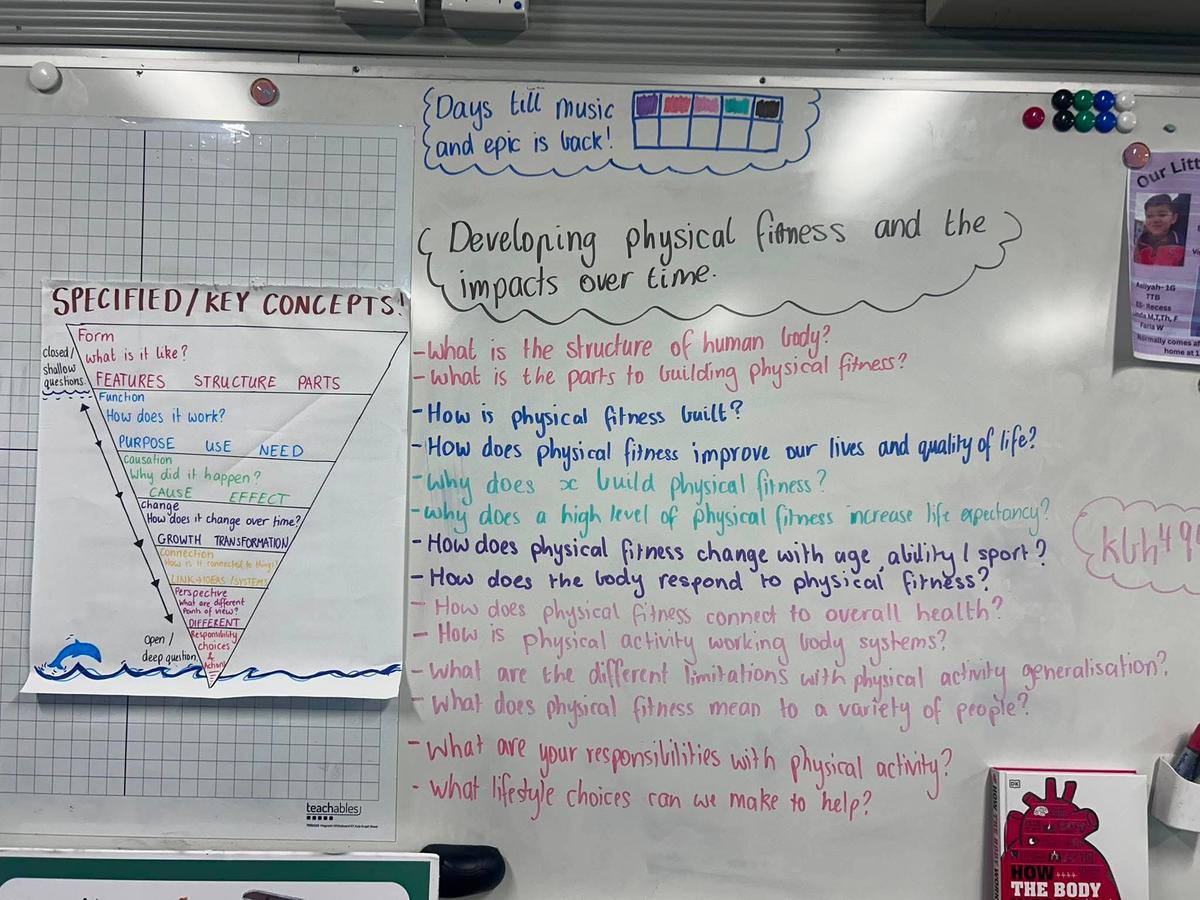 Days till music
and epic is back!
Developing physical fitness and the
impacts over time.
SPECIFIED/KEY CONCEPTS!
closed/
shallow
questions.
Form
what is it like?
FEATURES STRUCTURE PARTS
Function
How does it work?
PURPOSE USE NEED
Causation
Why did it happen?
CAUSE EFFECT
Change
How does it change over time?
GROWTH TRANSFORMATION
Connection
How is it connected to things?
LINK IDEAS/SYSTEMS
Perspective
What are different
Points of view?
DIFFERENT
Responsibility
choices
&
Action!
open/
deep question
-What is the structure of human body?
-What is the parts to building physical fitness?
-How is physical fitness built?
-How does physical fitness improve our lives and quality of life?
-Why does x build physical fitness?
-Why does a high level of physical fitness increase life expectancy?
-How does physical fitness change with age, ability / sport?
-How does the body respond to physical fitness?
-How does physical fitness connect to overall health?
-How is physical activity working body systems?
-What are the different limitations with physical activity generalisation?
-What does physical fitness mean to a variety of people?
-What are your responsibilities with physical activity?
-What lifestyle choices can we make to help?
Our Litt
Aaliyah- 1G
TTB
ES- Recess
M,T,Th, F
Faria W
Normally comes af
home at 1
teachables
DK
HOW
THE BODY